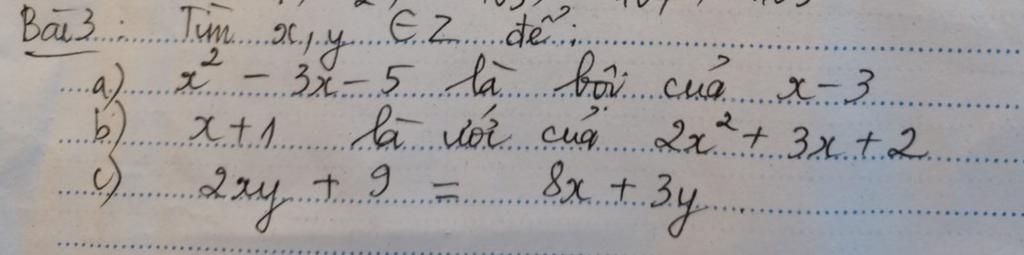 Bài 3: Tìm x, y ∈ Z để:
a) x² - 3x - 5 là bội của x - 3
b) x + 1 là ước của 2x² + 3x + 2
c) 2xy + 9 = 8x + 3y.